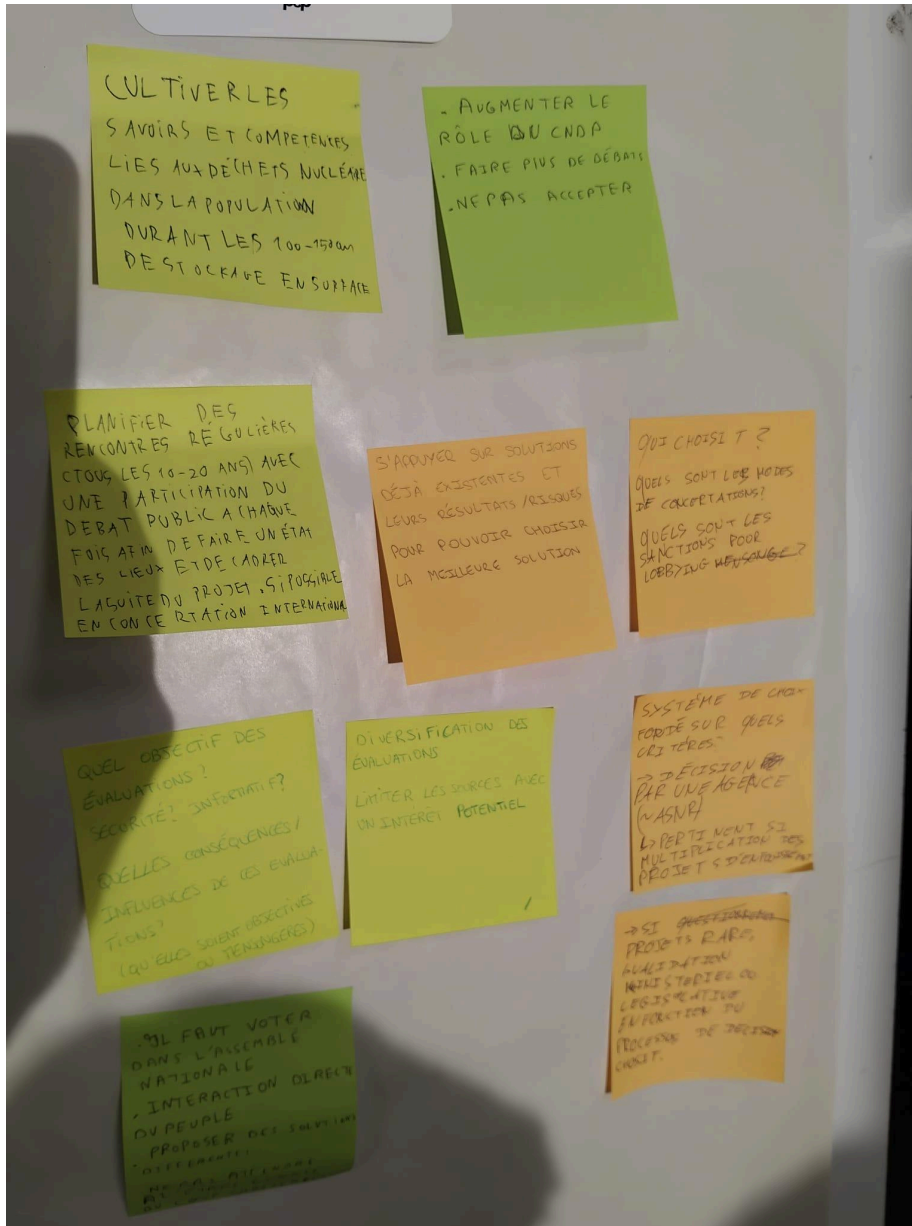 pop
CULTIVER LES
SAVOIRS ET COMPETENCES
LIES AUX DÉCHETS NUCLÉAIRE
DANS LA POPULATION
DURANT LES 100-150 an
DE STOCKAGE EN SURFACE
. AUGMENTER LE
RÔLE DU CNDP
. FAIRE PLUS DE DÉBATS
. NE PAS ACCEPTER
PLANIFIER DES
RENCONTRES RÉGULIÈRES
(TOUS LES 10-20 ANS) AVEC
UNE PARTICIPATION DU
DEBAT PUBLIC A CHAQUE
FOIS AFIN DE FAIRE UN ÉTAT
DES LIEUX ET DE CADRER
LA SUITE DU PROJET. SI POSSIBLE
EN CONCERTATION INTERNATIONAL
S'APPUYER SUR SOLUTIONS
DÉJÀ EXISTENTES ET
LEURS RÉSULTATS/RISQUES
POUR POUVOIR CHOISIR
LA MEILLEURE SOLUTION
QUI CHOISIT ?
QUELS SONT LES MODES
DE CONCERTATIONS?
QUELS SONT LES
SANCTIONS POUR
LOBBYING MENSONGE ?
QUEL OBJECTIF DES
ÉVALUATIONS ?
SÉCURITÉ? INFORMATIF?
QUELLES CONSÉQUENCES/
INFLUENCES DE CES ÉVALUA-
TIONS?
(QU'ELLES SOIENT OBJECTIVES
OU MENSONGÈRES)
DIVERSIFICATION DES
ÉVALUATIONS
LIMITER LES SOURCES AVEC
UN INTÉRÊT POTENTIEL
SYSTÈME DE CHOIX
FONDÉ SUR QUELS
CRITÈRES?
→ DÉCISION
PAR UNE AGENCE
(~ASNR)
↳ PERTINENT SI
MULTIPLICATION DES
PROJETS D'ENFOUISSEMENT
→ SI
PROJETS RARE,
VALIDATION
MINISTERIEL OU
LEGISLATIVE
EN FONCTION DU
PROCESSUS DE DECISION
CHOISIT.
. IL FAUT VOTER
DANS L'ASSEMBLÉ
NATIONALE
. INTERACTION DIRECTE
DU PEUPLE
. PROPOSER DES SOLUTIONS
DIFFERENTES
. NE PAS ATTENDRE